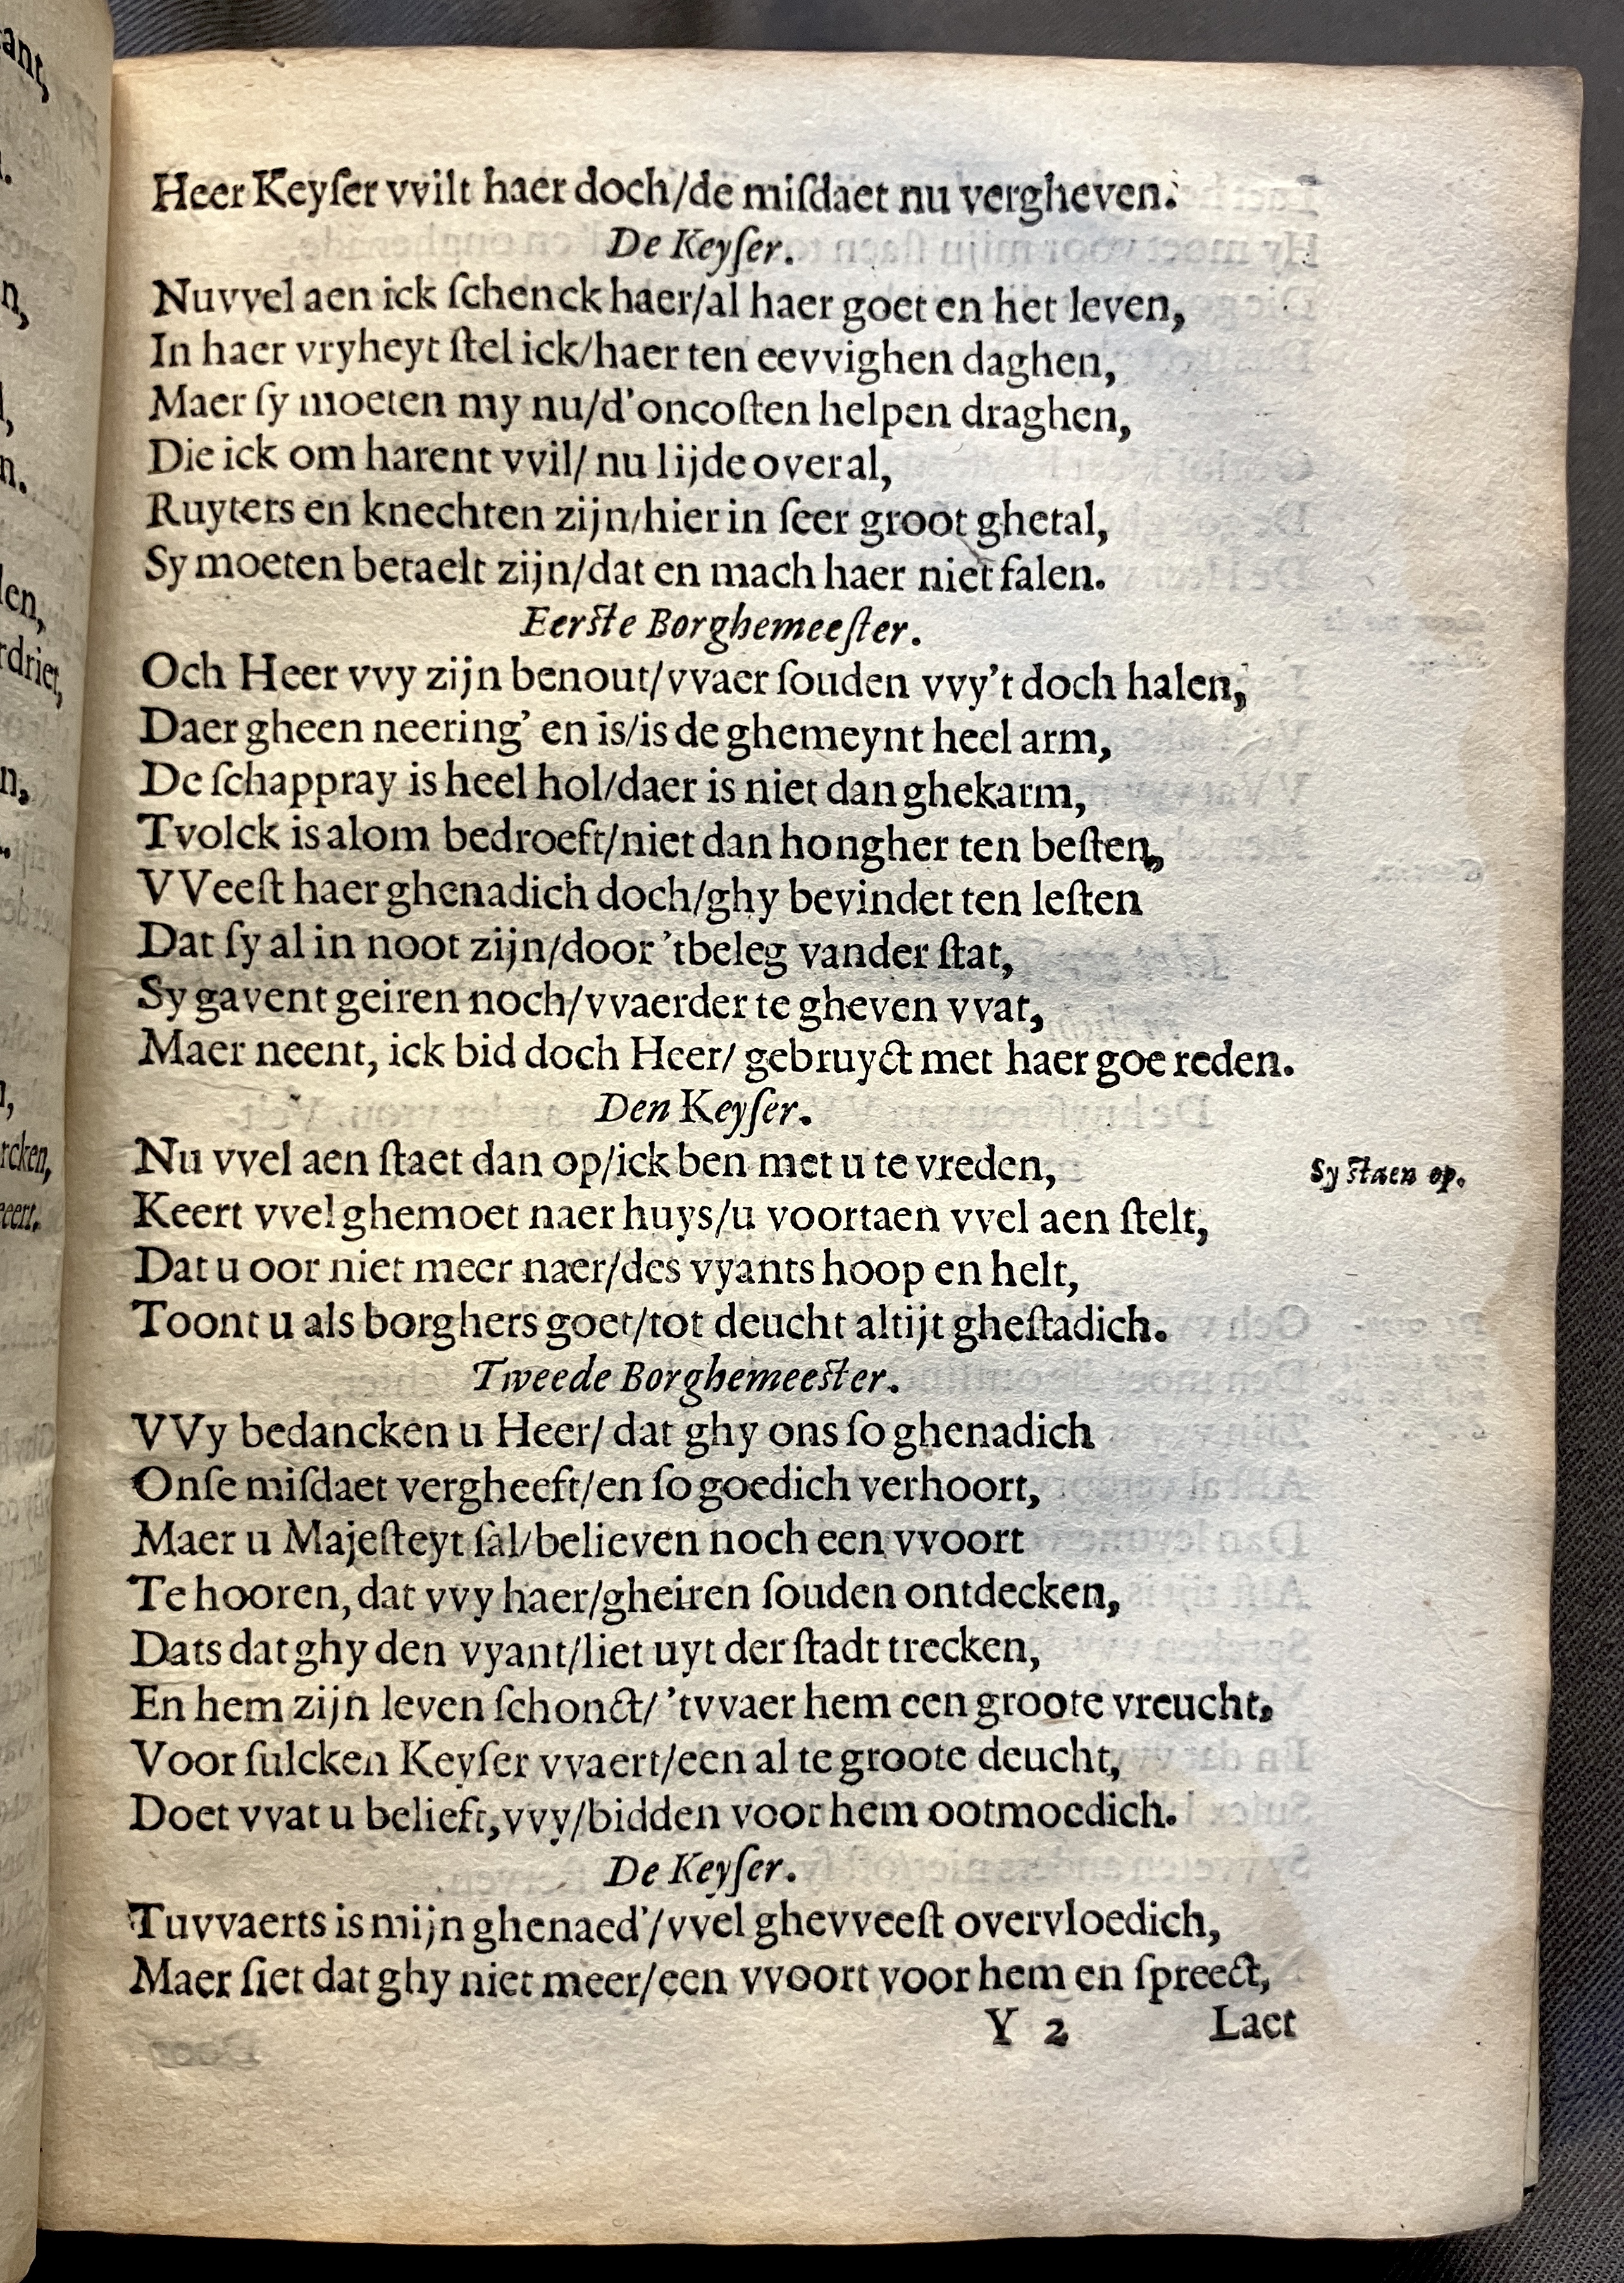 Heer Keyſer vvilt haer doch/de miſdaet nu vergheven.
De Keyſer.
Nuvvel aen ick ſchenck haer/al haer goet en het leven,
In haer vryheyt ſtel ick/haer ten eevvighen daghen,
Maer ſy moeten my nu/d'oncoſten helpen draghen,
Die ick om harent vvil/ nu lijde over al,
Ruyters en knechten zijn/hier in ſeer groot ghetal,
Sy moeten betaelt zijn/dat en mach haer niet falen.
Eerſte Borghemeeſter.
Och Heer vvy zijn benout/vvaer ſouden vvy't doch halen,
Daer gheen neering' en is/is de ghemeynt heel arm,
De ſchappray is heel hol/daer is niet dan ghekarm,
Tvolck is alom bedroeft/niet dan hongher ten beſten,
VVeeſt haer ghenadich doch/ghy bevindet ten leſten
Dat ſy al in noot zijn/door 'tbeleg vander ſtat,
Sy gavent geiren noch/vvaerder te gheven vvat,
Maer neent, ick bid doch Heer/ gebruyct met haer goe reden.
Den Keyſer.
Nu vvel aen ſtaet dan op/ick ben met u te vreden,
Sy ſtaen op.
Keert vvel ghemoet naer huys/u voortaen vvel aen ſtelt,
Dat u oor niet meer naer/des vyants hoop en helt,
Toont u als borghers goet/tot deucht altijt gheſtadich.
Tweede Borghemeeſter.
VVy bedancken u Heer/ dat ghy ons ſo ghenadich
Onſe miſdaet vergheeft/en ſo goedich verhoort,
Maer u Majeſteyt ſal/believen noch een vvoort
Te hooren, dat vvy haer/gheiren ſouden ontdecken,
Dats dat ghy den vyant/liet uyt der ſtadt trecken,
En hem zijn leven ſchonct/ 'tvvaer hem een groote vreucht,
Voor ſulcken Keyſer vvaert/een al te groote deucht,
Doet vvat u belieft,vvy/bidden voor hem ootmoedich.
De Keyſer.
Tuvvaerts is mijn ghenaed'/vvel ghevveeſt overvloedich,
Maer ſiet dat ghy niet meer/een vvoort voor hem en ſpreect,
Y 2 Laet